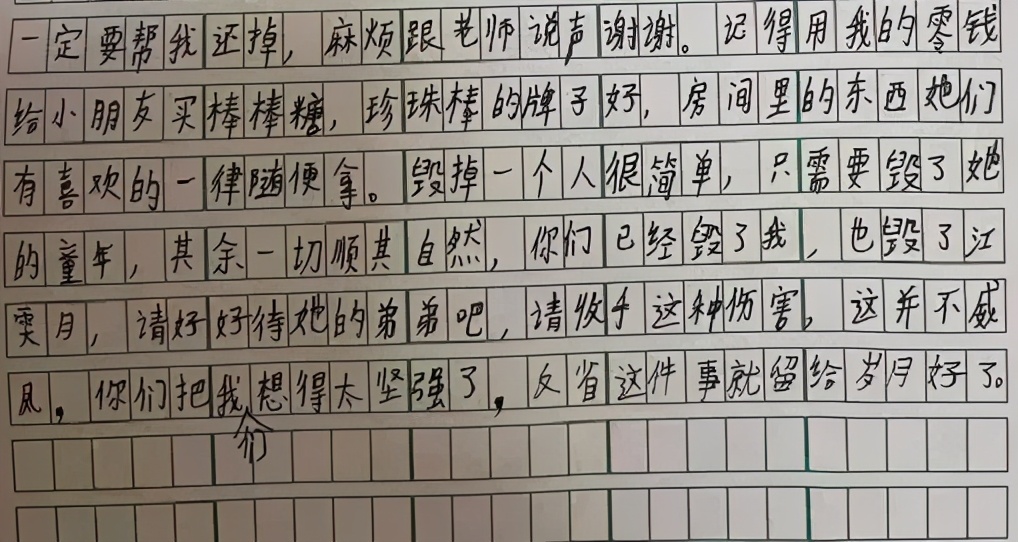 一定要帮我还掉，麻烦跟老师说声谢谢。记得用我的零钱
给小朋友买棒棒糖，珍珠棒的牌子好，房间里的东西她们
有喜欢的一律随便拿。毁掉一个人很简单，只需要毁了她
的童年，其余一切顺其自然，你们已经毁了我，也毁了江
雯月，请好好待她的弟弟吧，请收手这种伤害，这并不威
风，你们把我们想得太坚强了，反省这件事就留给岁月好了。